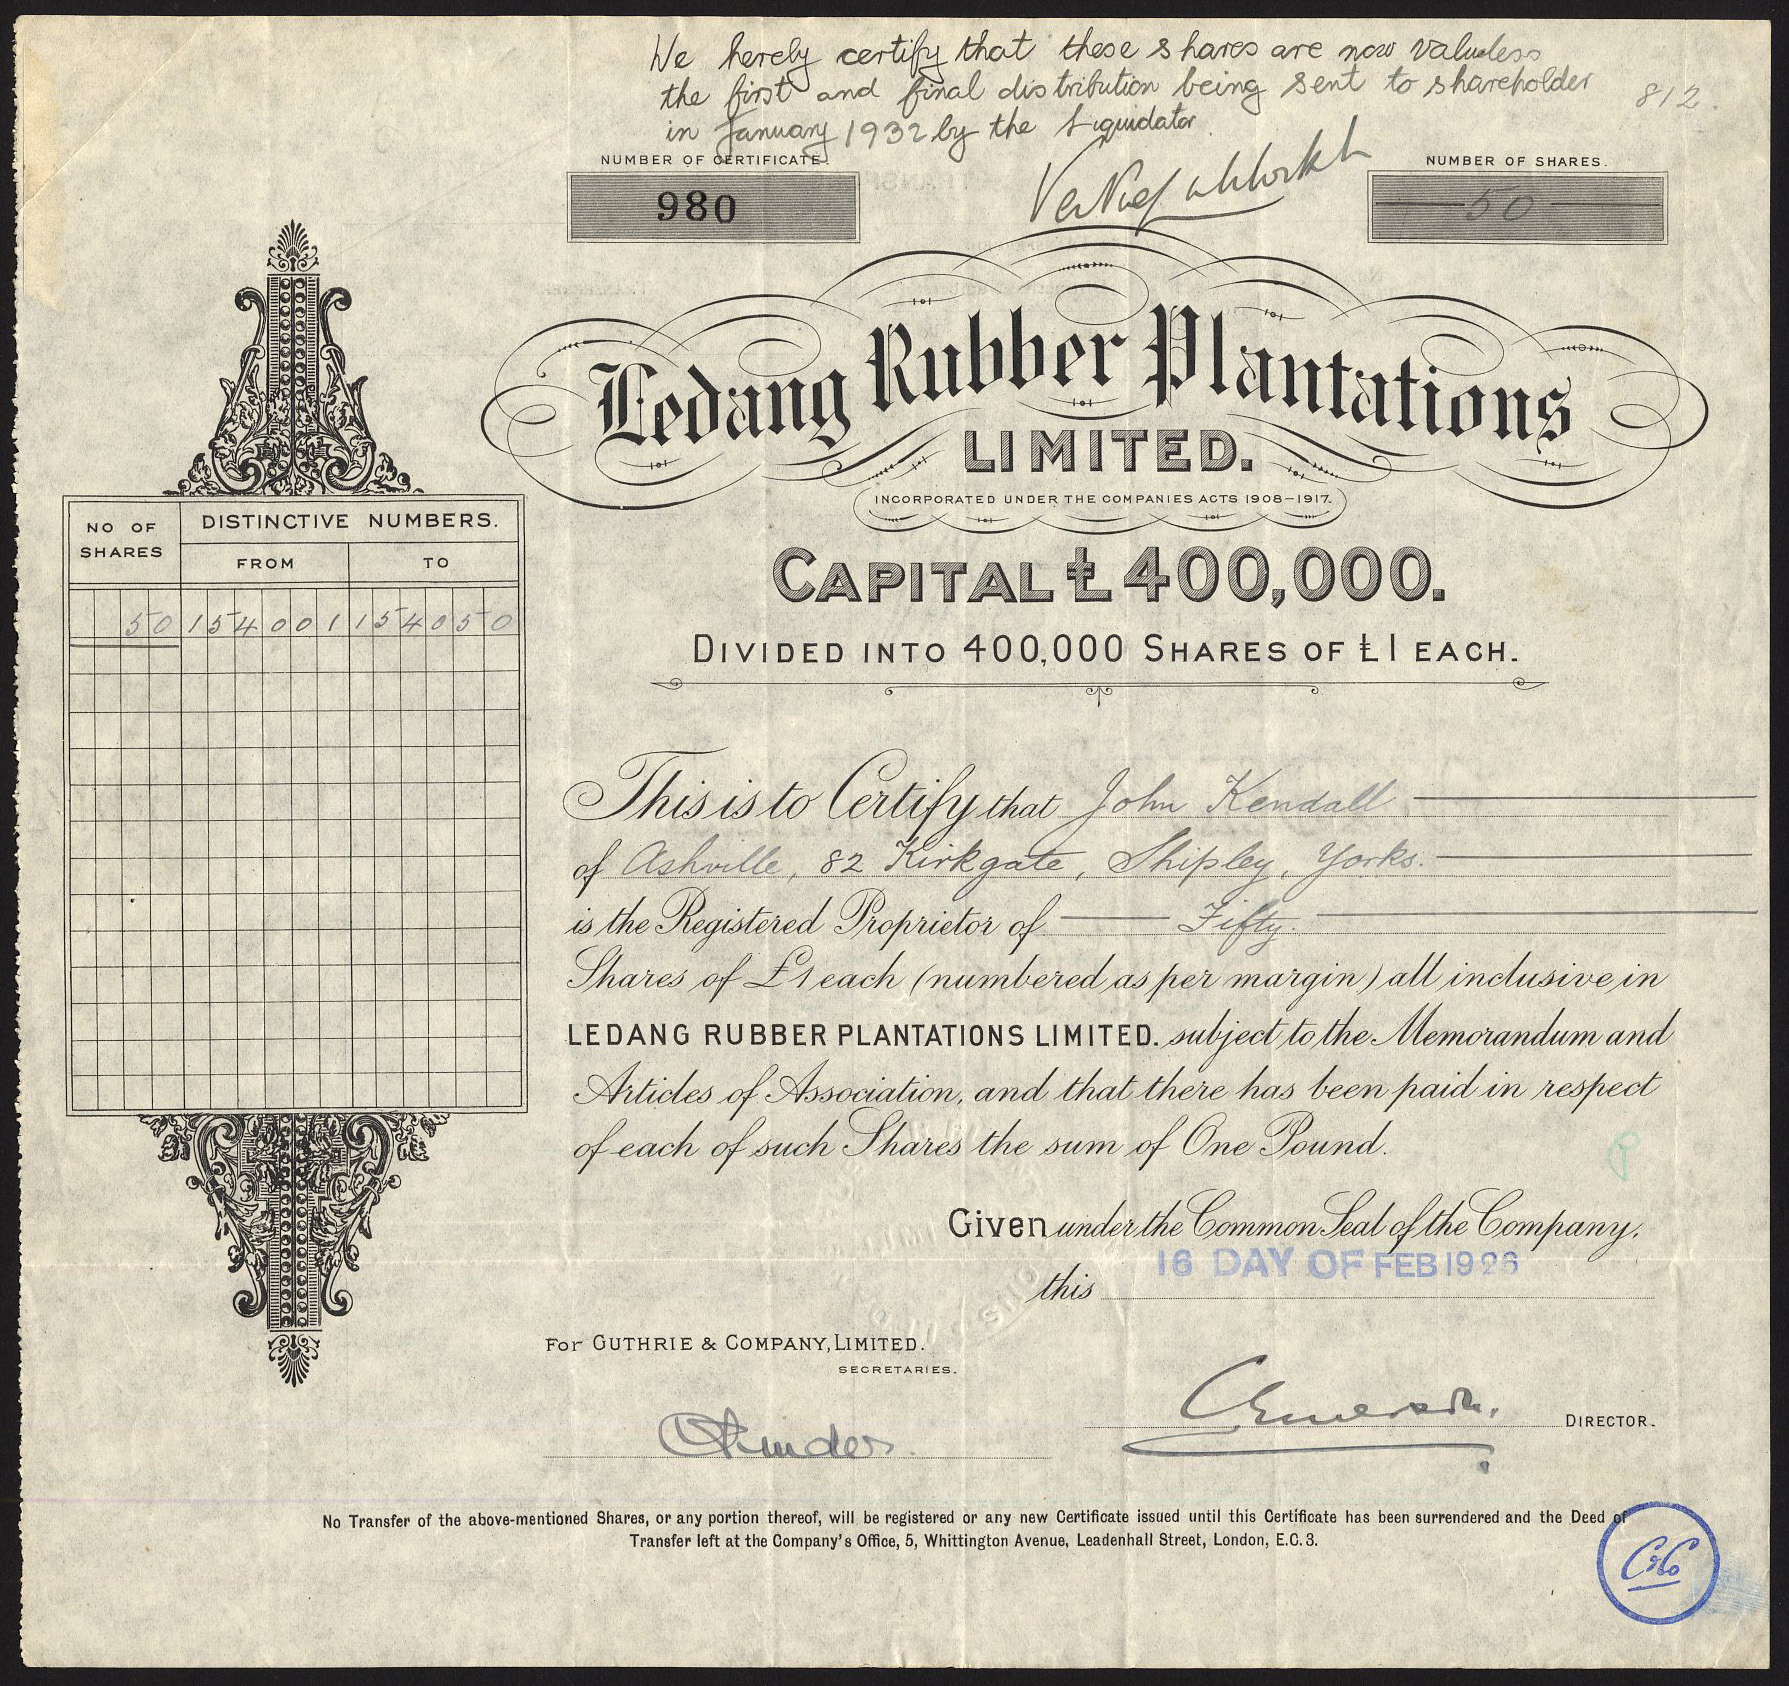 We hereby certify that these shares are now valueless
the first and final distribution being sent to shareholder 812.
in January 1932 by the Liquidator
NUMBER OF CERTIFICATE.
NUMBER OF SHARES.
980
50
Ledang Rubber Plantations
LIMITED.
INCORPORATED UNDER THE COMPANIES ACTS 1908–1917.
NO OF SHARES
DISTINCTIVE NUMBERS.
FROM TO
50 154001 154050
CAPITAL £400,000.
DIVIDED INTO 400,000 SHARES OF £1 EACH.
This is to Certify that John Kendall
of Ashville, 82 Kirkgate, Shipley, Yorks.
is the Registered Proprietor of Fifty.
Shares of £1 each (numbered as per margin) all inclusive in
LEDANG RUBBER PLANTATIONS LIMITED. subject to the Memorandum and
Articles of Association, and that there has been paid in respect
of each of such Shares the sum of One Pound.
Given under the Common Seal of the Company,
this 16 DAY OF FEB 1926
For GUTHRIE & COMPANY, LIMITED.
SECRETARIES.
DIRECTOR.
No Transfer of the above-mentioned Shares, or any portion thereof, will be registered or any new Certificate issued until this Certificate has been surrendered and the Deed of
Transfer left at the Company's Office, 5, Whittington Avenue, Leadenhall Street, London, E.C.3.